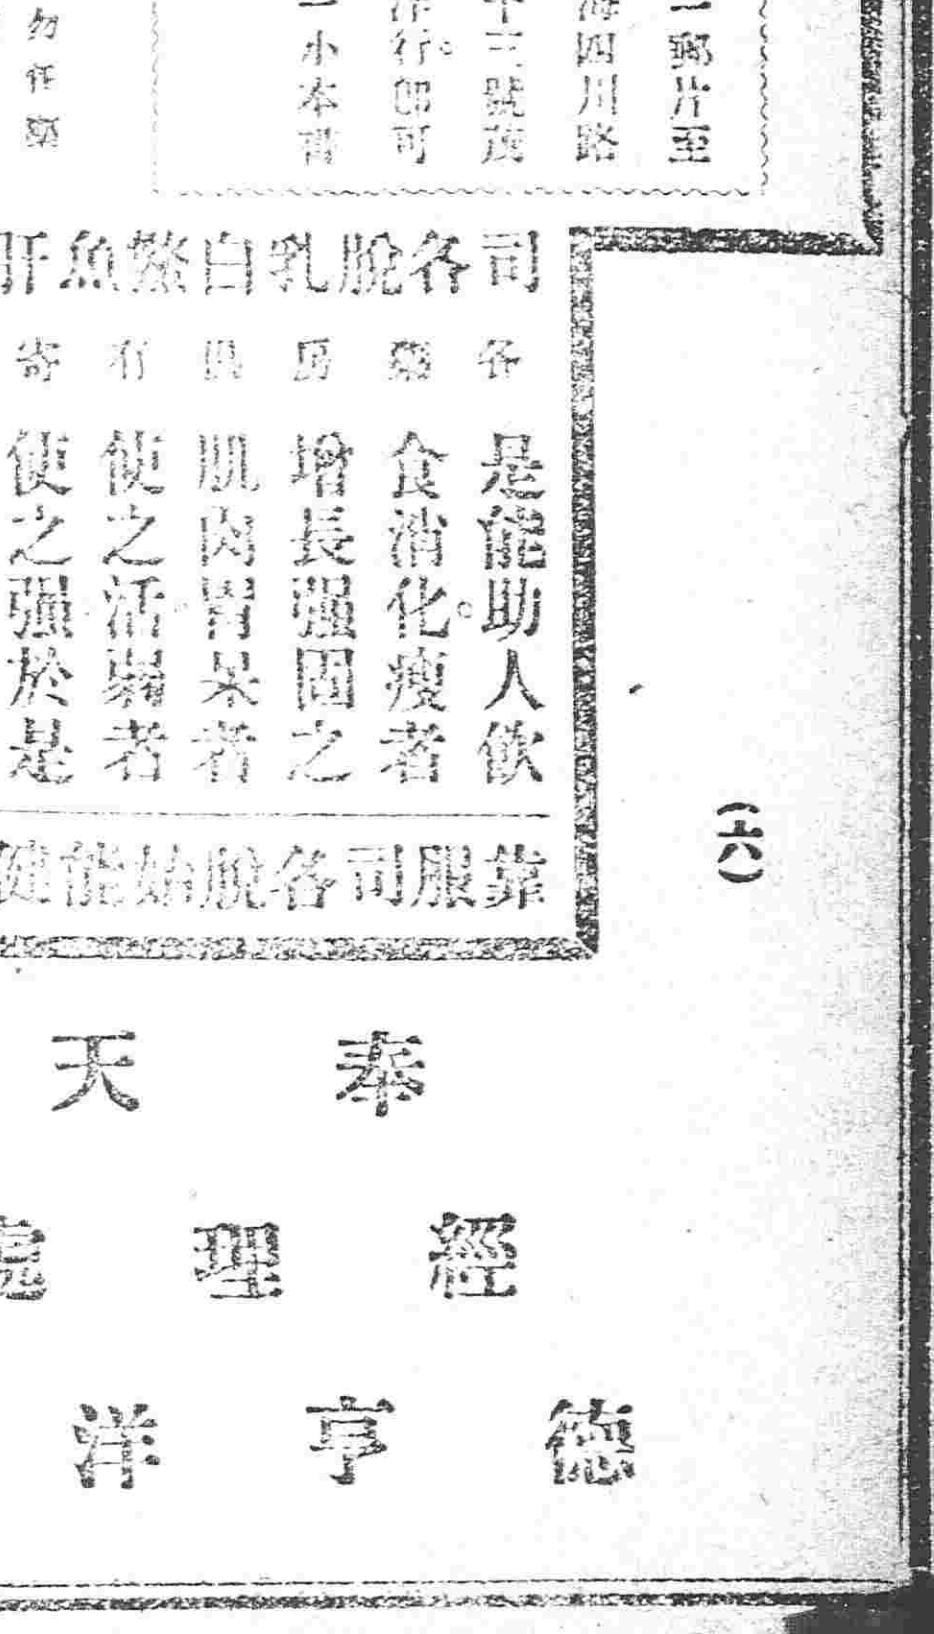 一郵片至
海四川路
十三號茂
洋行。卽可
一小本書
勿任
司各脫乳白鰵魚肝
各藥房俱有寄
是能助人飲
食消化。瘦者
增長强固之
肌肉胃呆者
使之活弱者
使之强於是
靠服司各脫始能健
(六)
奉天
經理處
德亨洋